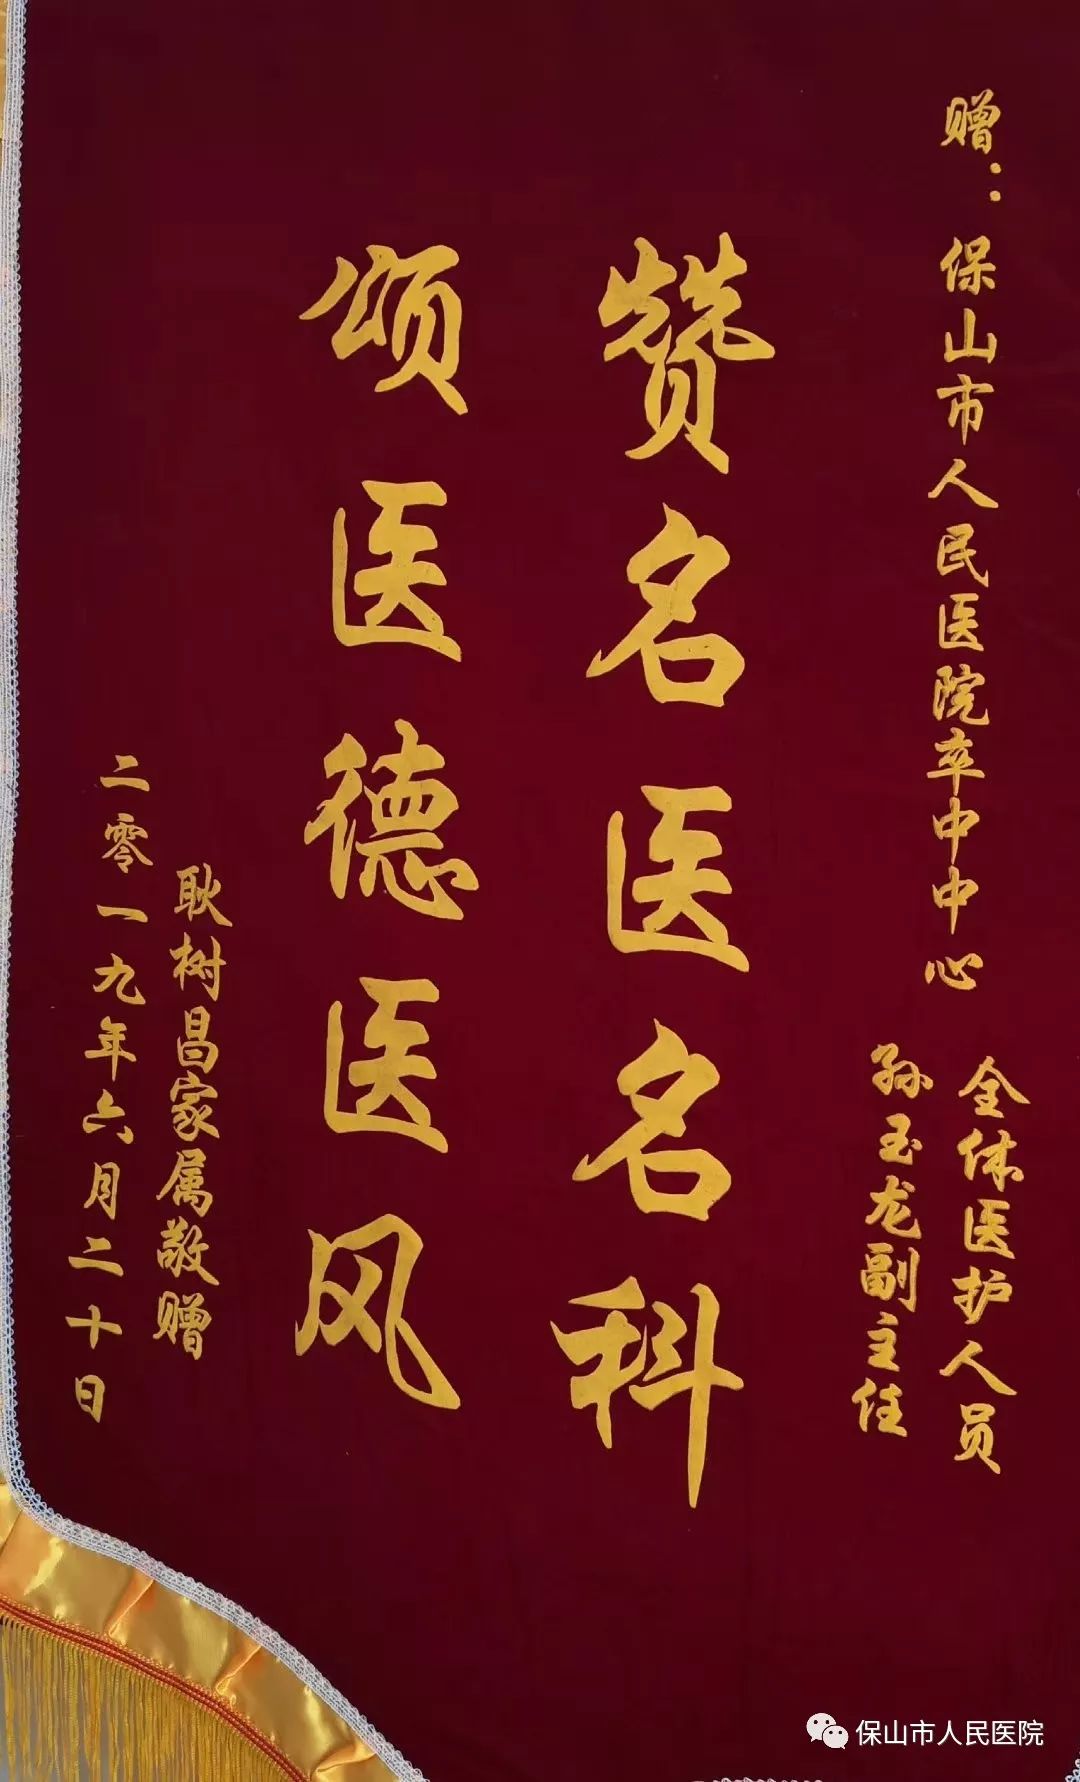 赠：保山市人民医院卒中中心
全体医护人员
孙玉龙副主任
赞名医名科
颂医德医风
耿树昌家属敬赠
二零一九年六月二十日
保山市人民医院